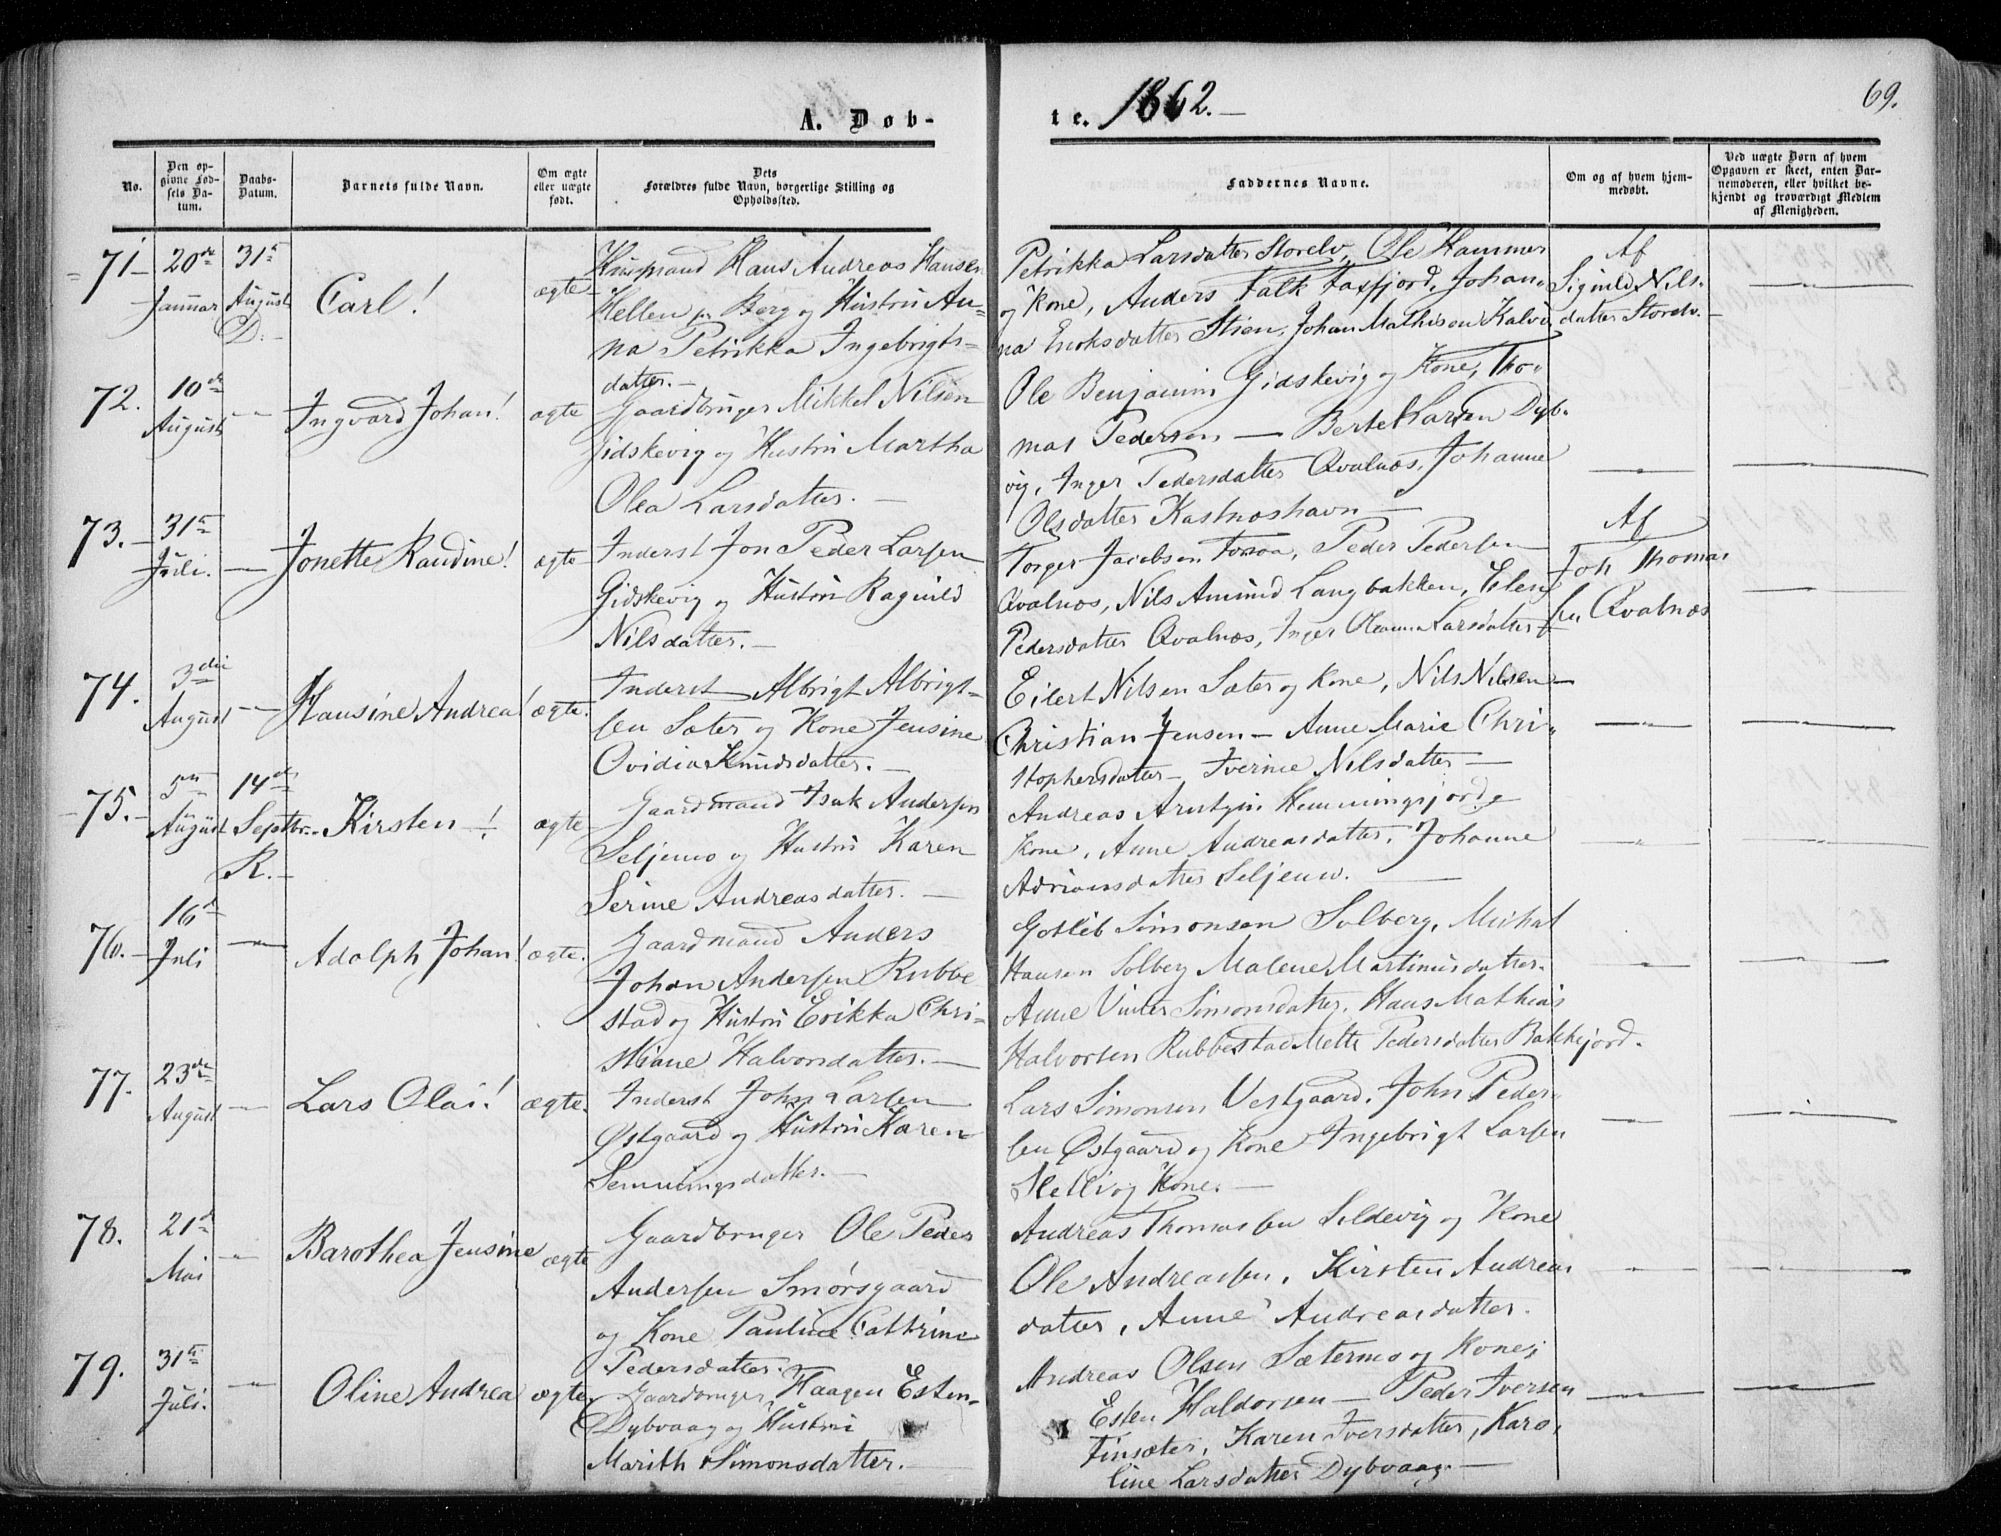 A. Døb-
te. 1862.
69.
No.
Den op-
givne Fød-
sels Da-
tum.
Daabs-
Datum.
Barnets fulde Navn.
Om ægte
eller uægte
født.
Dets
Forældres fulde Navn, borgerlige Stilling og
Opholdssted.
Faddernes Navne.
Om og af hvem hjem-
medøbt.
Ved uægte Børn af hvem
Opgaven er skeet, enten Bar-
nemoderen, eller hvilket be-
kjendt og troværdigt Medlem
af Menigheden.
71
20de
Januar
31te
August
D.
Carl!
ægte
Huusmand Hans Andreas Hansen
Hellen Berg og Hustru An-
na Petrikka Ingebrigts-
datter.
Petrikka Larsdatter Storelv, Ole Hammer
og Kone, Anders Falk Taxfjord, Johan-
na Eriksdatter Stien, Johan Mathisen Kalvig
Af
Sigrild Nils-
datter Storelv.
72.
10de
August
Ingvard Johan!
ægte
Gaardbruger Mikkel Nilsen
Gidskevig og Hustru Martha
Olea Larsdatter.
Ole Benjamin Gidskevig og Kone, Tho-
mas Pedersen — Berte Larsen Dyb-
vig, Inger Pedersdatter Qvalnæs, Johanne
Olsdatter Kastnæshavn
73.
31te
Juli.
Jonette Randine!
ægte
Inderst Jon Peder Larsen
Gidskevig og Hustru Ragnild
Nilsdatter.
Torger Jacobsen, Peder Pedersen
Qvalnæs, Nils Amund Langbakken, Elen
Pedersdatter Qvalnæs, Inger Oleanna Larsdatter
Af
Joh Thomas
sen Qvalnæs
74.
3die
August
Hansine Andrea!
ægte.
Inderst Albrigt Albrigt-
sen Sæter og Kone Jensine
Ovidia Knudsdatter.
Eilert Nilsen Sæter og Kone, Nils Nilsen
Christian Jensen — Anne Marie Chri-
stophersdatter — Iverine Nilsdatter
75.
5te
August
14de
Septbr.
R.
Kirsten!
ægte
Gaardmand Isak Andersen
Seljemo og Hustru Karen
Serine Andreasdatter.
Andreas Arntzen Hemmingsjord og
Kone, Anne Andreasdatter, Johanne
Adriansdatter Seljemo.
76.
16de
Juli
Adolph Johan!
ægte.
Gaardmand Anders
Johan Andersen Rubbe
stad og Hustru Erikka Chri-
stiane Halvorsdatter.
Gotlib Simonsen Solberg, Michal
Hansen Solberg Malene Martinusdatter.
Anne Vinter Simonsdatter, Hans Mathias
Halvorsen Rubbestad Mette Pedersdatter Bakkejord.
77.
23de
August
Lars Olai!
ægte.
Inderst John Larsen
Østgaard og Hustru Karen
Henningsdatter.
Lars Simonsen Vestgaard, John Peder-
sen Østgaard og Kone Ingebrigt Larsen
Sletli og Kone.
78.
21de
Mai
Barothea Jensine
ægte
Gaardbruger Ole Peder
Andersen Smørsgaard
og Kone Pauline Cathrine
Pedersdatter.
Andreas Thomassen Sildevig og Kone
Ole Andreassen, Kirsten Andreas
datter, Anne Andreasdatter.
79.
31te
Juli.
Oline Andrea
ægte
Gaardbruger Haagen Esten-
Dybvaag og Hustru
Marith Simonsdatter.
Andreas Olsen Sætermo og Kone,
Esten Haldorsen — Peder Iversen
Finsæter, Karen Iversdatter, Karo-
line Larsdatter Dybvaag.